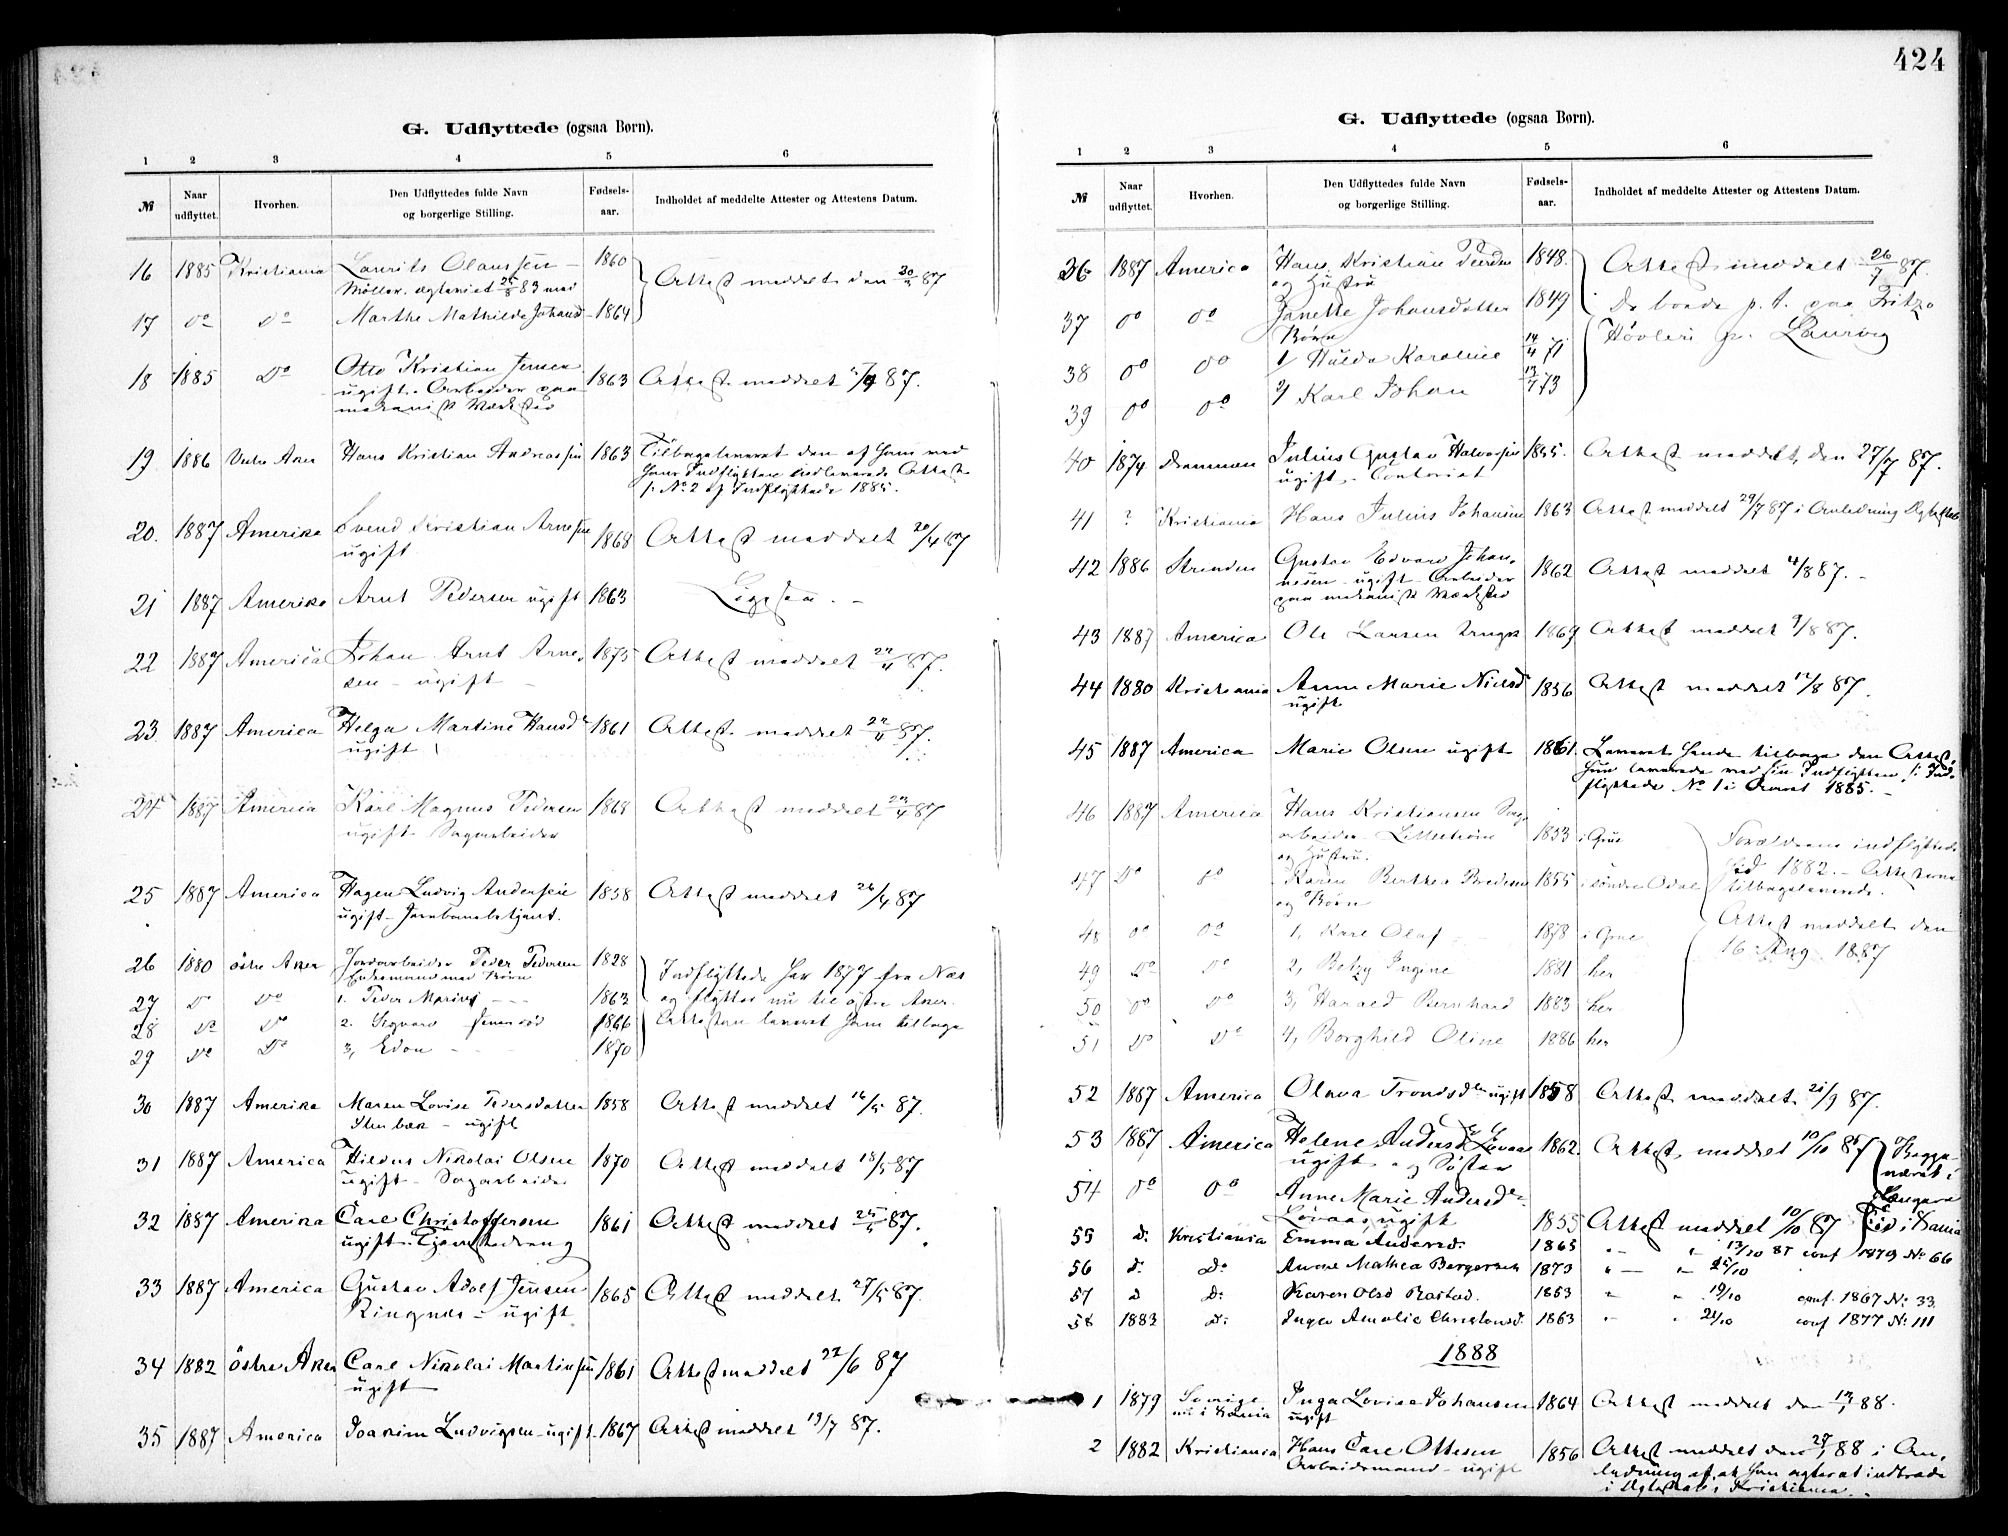 424
G. Udflyttede (ogsaa Børn).
1 2 3 4 5 6
№ Naar udflyttet. Hvorhen. Den Udflyttedes fulde Navn og borgerlige Stilling. Fødsels-aar. Indholdet af meddelte Attester og Attestens Datum.
16 1885 Kristiania Laurits Olaussen 1860 Attest meddelt den 87
83 med
17 do do Marthe Mathilde Johansd 1864
18 1885 Do Otto Kristian Jensen 1863 Attest meddelt 87.
ugift. Arbeider paa
mekanisk Værksted
19 1886 Vestre Aker Hans Kristian Andreassen 1863 Tilbageleveret den af ham ved
hans Indflytten indleverede Attest
f. No 2 af Indflyttede 1885.
20. 1887 Amerika Svend Kristian Arnesen 1868 Attest meddelt 20/4 87
ugift
21 1887 Amerika Arnt Pedersen ugift 1863 Ligesaa. –
22 1887 America Johan Arnt Arne- 1875 Attest meddelt 22/4 87.
sen – ugift –
23 1887 America Helga Martine Hansd 1861 Attest meddelt 22/4 87.
ugift
24 1887 America Karl Magnus Pedersen 1868 Attest meddelt 87
ugift Sagarbeider
25 1887 America Hagen Ludvig Andersen 1858 Attest meddelt 26/4 87
ugift – Jernbanebetjent.
26 1880 østre Aker Jordarbeider Peder Pedersen 1828 Indflyttede her 1877 fra Næs
Enkemand med Børn
27 Do Do 1. Peder Marius 1863 og flytter nu til østre Aker.
28 Do Do 2. Sigvard 1866 Attesten leveret ham tilbage
29 Do Do 3, Edon 1870
30 1887 Amerika Maren Lovise Pedersdatter 1858 Attest meddelt 16/5 87.
Stenbæk – ugift
31 1887 America Hildus Nikolai Olsen 1870 Attest meddelt 18/5 87
ugift – Sagarbeider
32 1887 Amerika Carl Christoffersen 1861 Attest meddelt 25/5 87.
ugift. Tjenestedreng
33 1887 America Gustav Adolf Jensen 1865 Attest meddelt 27/5 87.
Ringnæs – ugift
34 1882 østre Aker Carl Nikolai Martinsen 1861 Attest meddelt 22/6 87
ugift
35 1887 America Joakim Ludvigsen – ugift 1867 Attest meddelt 13/7 87.
G. Udflyttede (ogsaa Børn).
1 2 3 4 5 6
№ Naar udflyttet. Hvorhen. Den Udflyttedes fulde Navn og borgerlige Stilling. Fødsels-aar. Indholdet af meddelte Attester og Attestens Datum.
36 1887 America Hans Kristian 1848. Attest meddelt 26/7 87.
og Hustru
37 do do Janette Johansdatter 1849 De boede p. t. paa Fritzø
Børn
38 do do 1/ Hulda Karoline 14/4 71 Høvleri pr. Laurvig
39 do do 2/ Karl Johan 73
40 1874 Drammen Julius Gustav Halvorsen 1855. Attest meddelt den 27/7 87.
ugift – Contorist
41 ? Kristiania Hans Julius Johansen 1863 Attest meddelt 29/7 87 i Anledning
42 1886 Strinden Gustav Edvard Johan- 1862 Attest meddelt 4/8 87. –
nesen – ugift – Arbeider
paa mekanisk Værksted
43 1887 America Ole Larsen 1869 Attest meddelt 9/8 87.
44 1880 Kristiania Anne Marie Nielsd 1856 Attest meddelt 12/8 87.
ugift
45 1887 America Marie Olsen ugift 1861. Leveret hende tilbage den Attest,
hun leverede ved sin Indflytten f. Ind-
flyttede No 1 i Aaret 1885. –
46 1887 America Hans Kristiansen Sag-
arbeider Lillestrøm 1853 i Grue Forældrene indflyttede
og Hustru. hid 1882. – Attesterne
47 Do do Karen Berthea 1855 i søndre Odal tilbageleverede.
og Børn
48 do do 1, Karl Olaf 1878 i Grue Attest meddelt den
49 Do Do 2, Betzy Ingine 1881 her 16 Aug 1887
50 do do 3, Harald Bernhard 1883 her
51 Do Do 4, Borghild Oline 1886 her
52 1887 America Olava Trondsdtr ugift 1858 Attest meddelt 21/9 87.
53 1887 America Helene Andersd Løvaas 1862. Attest meddelt 10/10 87 Begge
ugift – og Søster været i
54 do do Anne Marie Andersdr længere
Løvaas, ugift 1855 Attest meddelt 10/10 87 Tid i Kania
55 d: Kristiania Emma Andersd: 1865 13/10 87 conf 1879 No 66
56 d: Do Anne Mathea Bergersen 1873 25/10
57 d D: Karen Olsd Rastad. 1853 19/10 conf. 1867 No: 33
58 1883 D: Inga Amalie Christensd. 1863 21/10 conf 1877 No: 111
1888
1 1879 Sverige Inga Lovise Johansen 1864 Attest meddelt den 88.
nu i Kania ugift
2 1882 Kristiania Hans Carl Ottesen 1856 Attest meddelt den 88 i An-
Arbeidsmand – ugift ledning af at han agter at indtræde
i Ægteskab i Kristiania. –